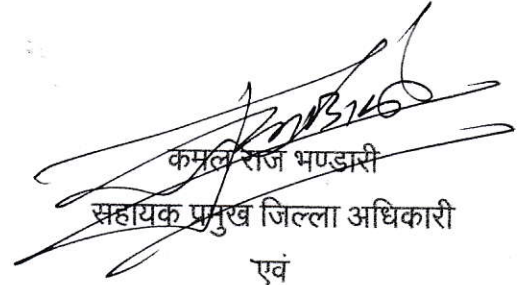 कमल राज भण्डारी
सहायक प्रमुख जिल्ला अधिकारी
एवं